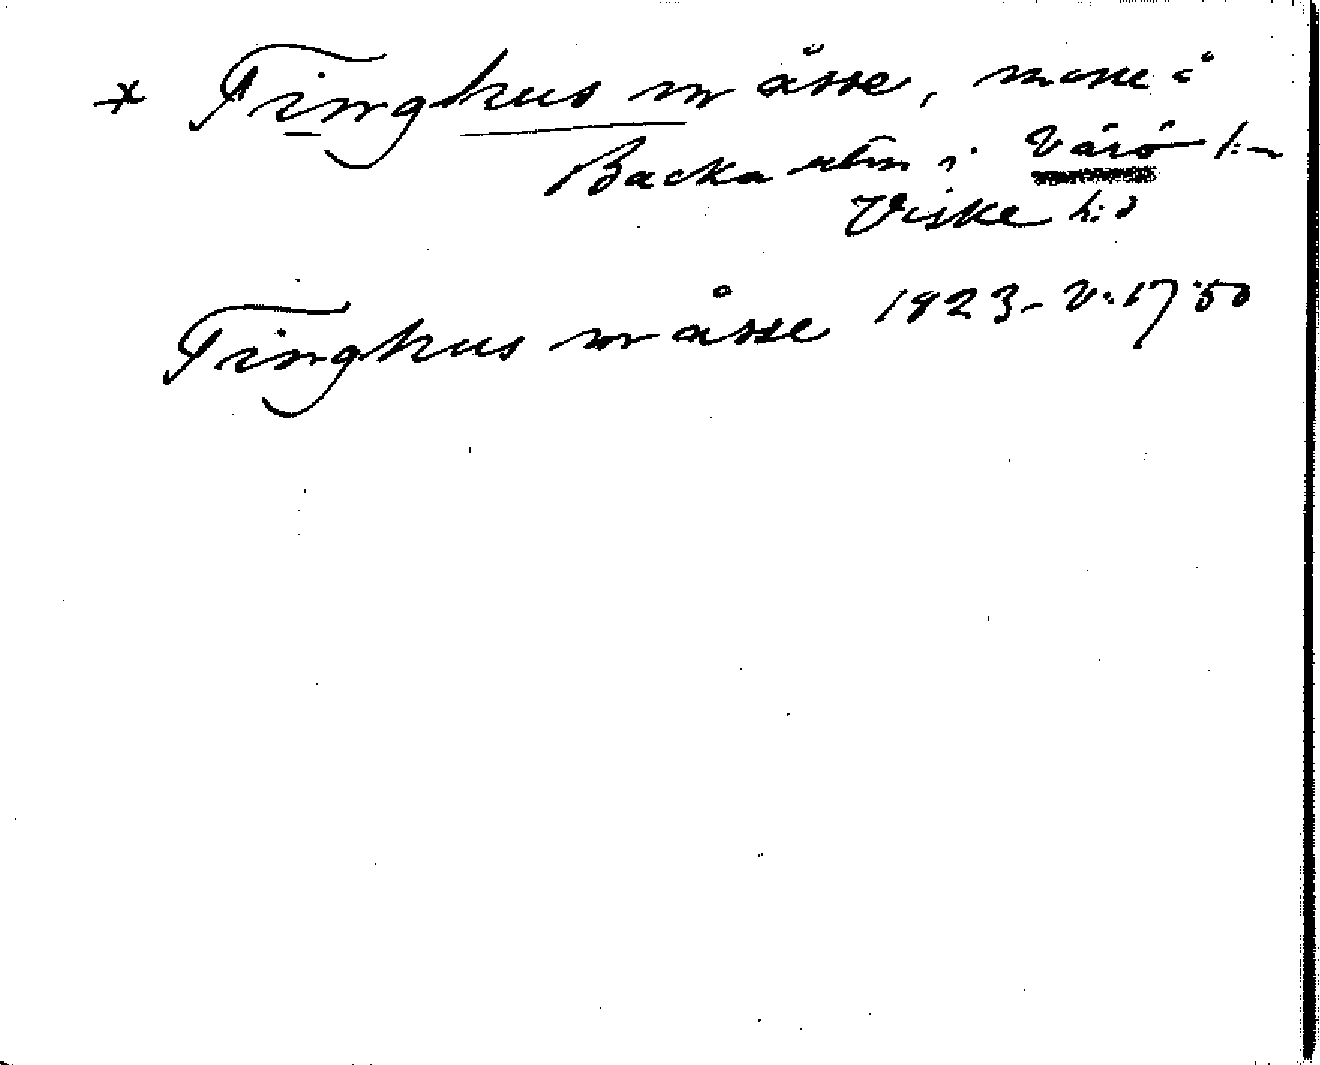 * Tinghusmåsse, mosse å
Backa utm. i Värö s:n
Viske h:d
Tinghusmåsse 1923 - V. 17 50